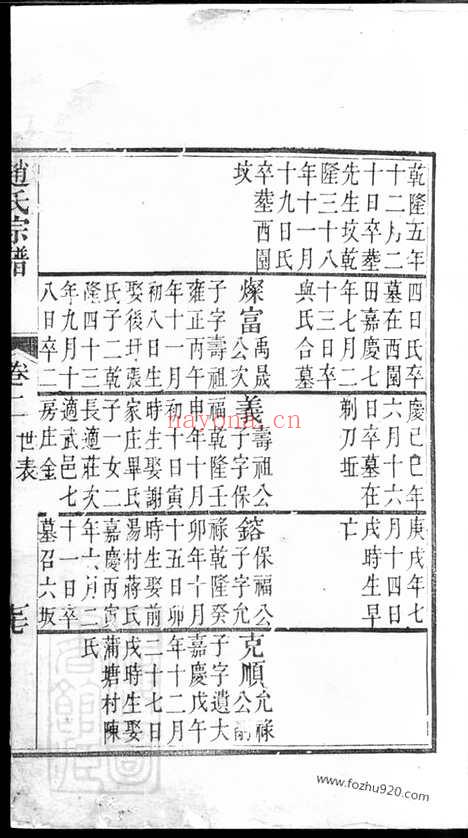 乾隆五年
十二月二
十日卒葬
先生坟乾
隆三十八
年十一月
十九日氏
卒葬西園
坟
四日氏卒
墓在西園
田嘉慶七
年七月二
十三日卒
與氏合墓
燦富禹晟公次
子字壽祖
雍正丙午
年十一月
初八日生
娶後圩張
氏子二乾
隆四十三
年九月十
八日卒二
慶己巳年
六月十六
日卒墓在
剃刀坵
義壽祖公
子字保
福乾隆壬
申年十月
初十日寅
時生娶謝
家庄畢氏
子一女二
長適莊次
適武邑七
房庄金
庚戌年七
月十四日
戌時生早
亡
鎔保福公
子字允
祿乾隆癸
卯年十月
十五日卯
時生娶前
湯村蔣氏
嘉慶丙寅
年六月二
十一日卒
墓召六坂
克順允祿公嗣
子字遺大
嘉慶戊午
年十二月
二十七日
戌時生娶
蒲塘村陳
氏
趙氏宗譜
卷二
世表
nayona.cn
www.fozhu920.com